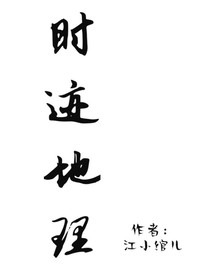 时迹地理
作者：
江小绾儿